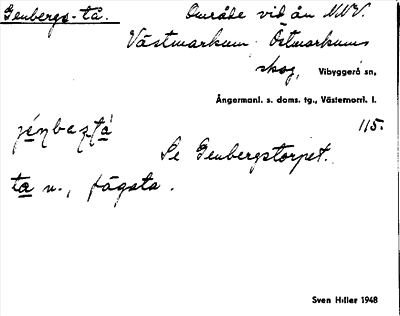 Genbergs-tå. Område vid ån NNV.
Västmarkum, Östmarkums
skog, Vibyggerå sn,
Ångermanl. s. doms. tg., Västernorrl. l.
115.
Se Genbergstorpet.
tå n., fägata.
Sven Hiller 1948